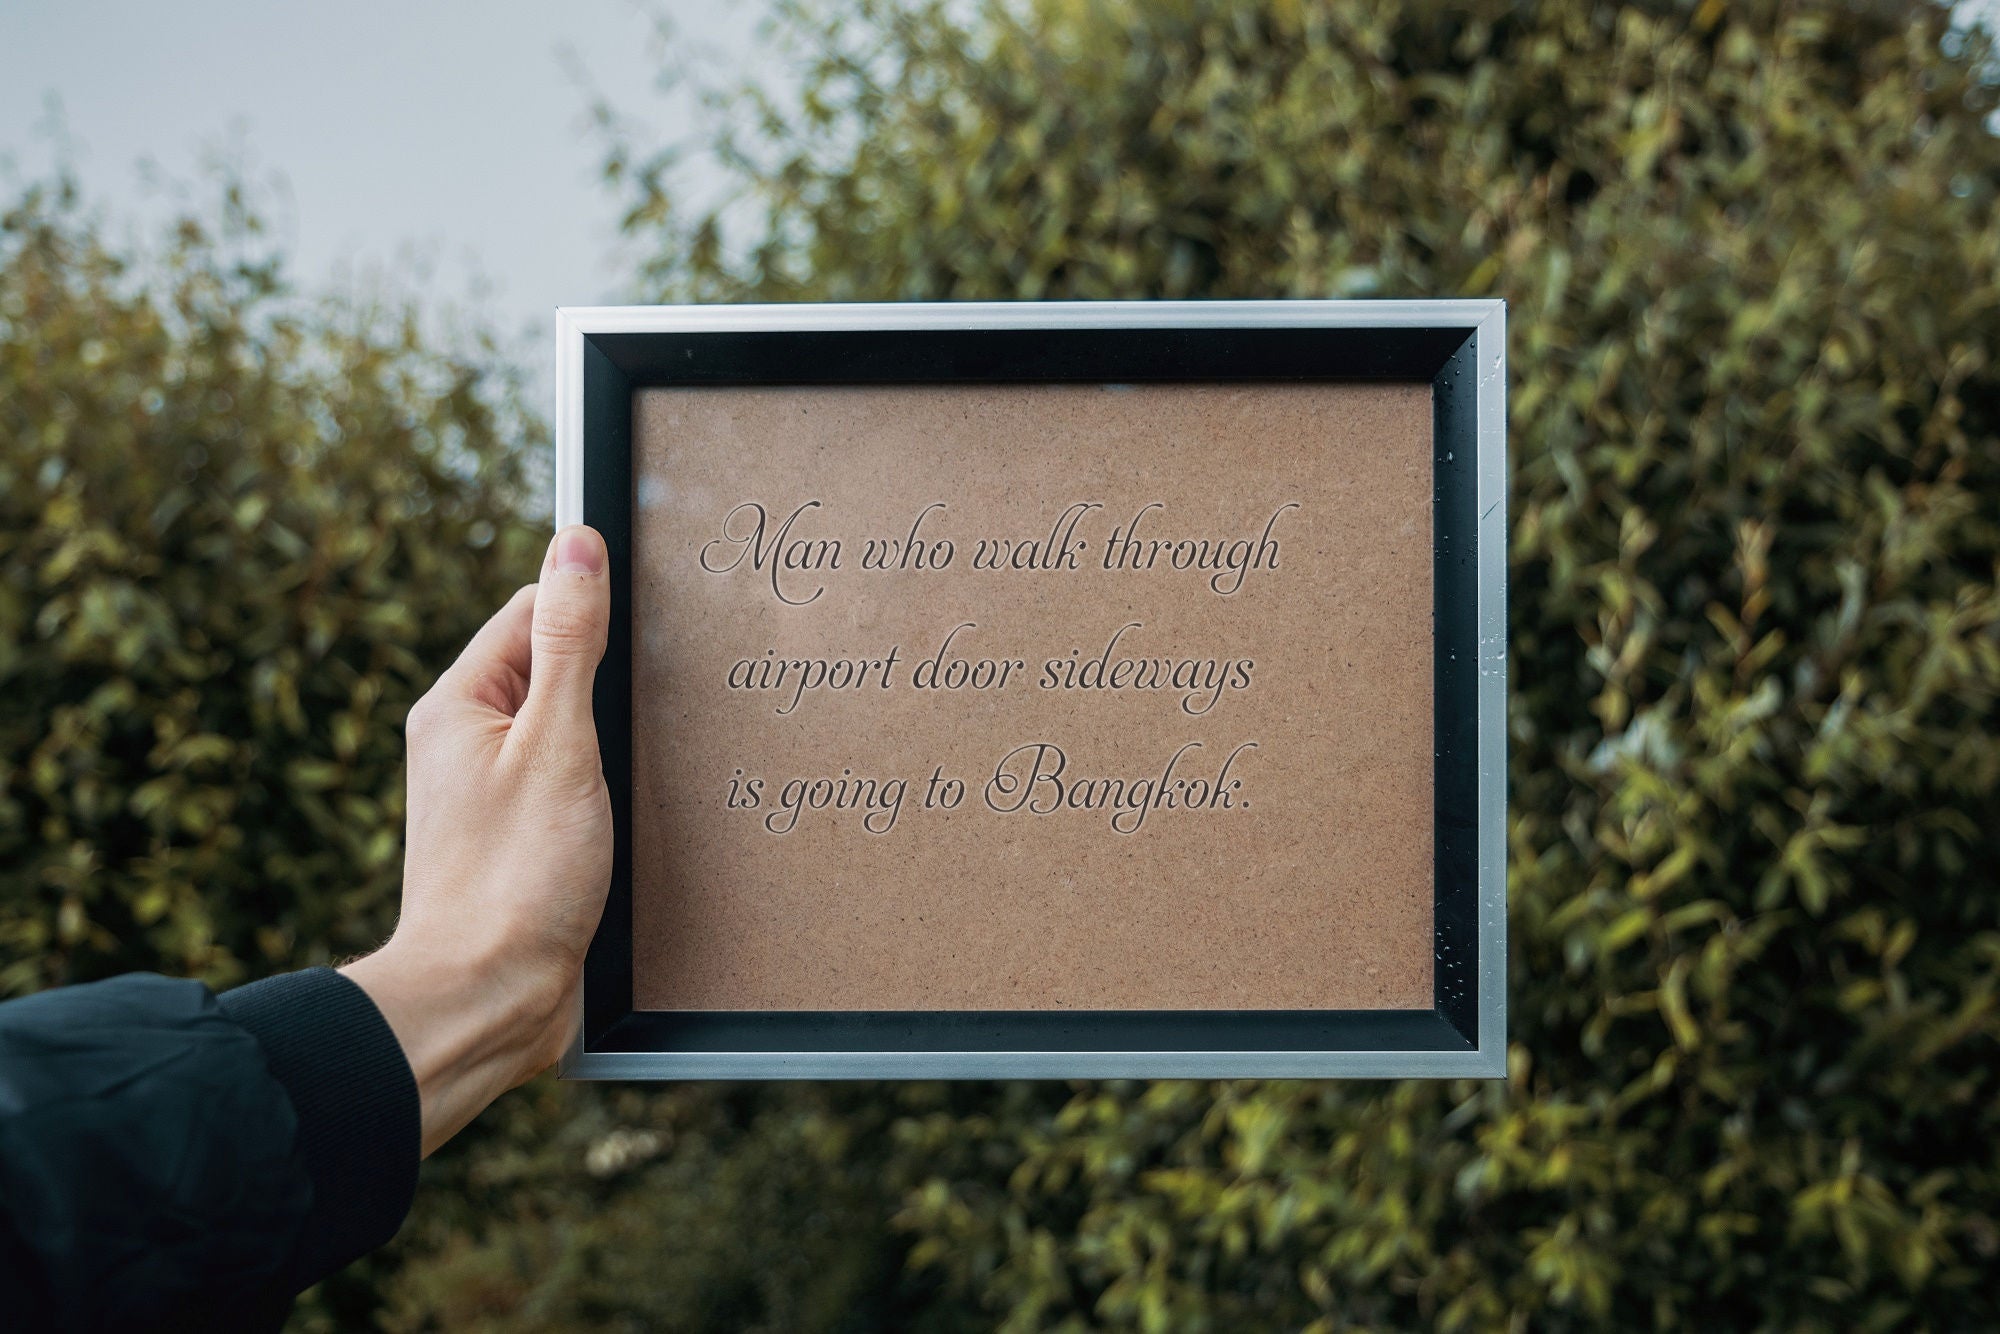 Man who walk through
airport door sideways
is going to Bangkok.